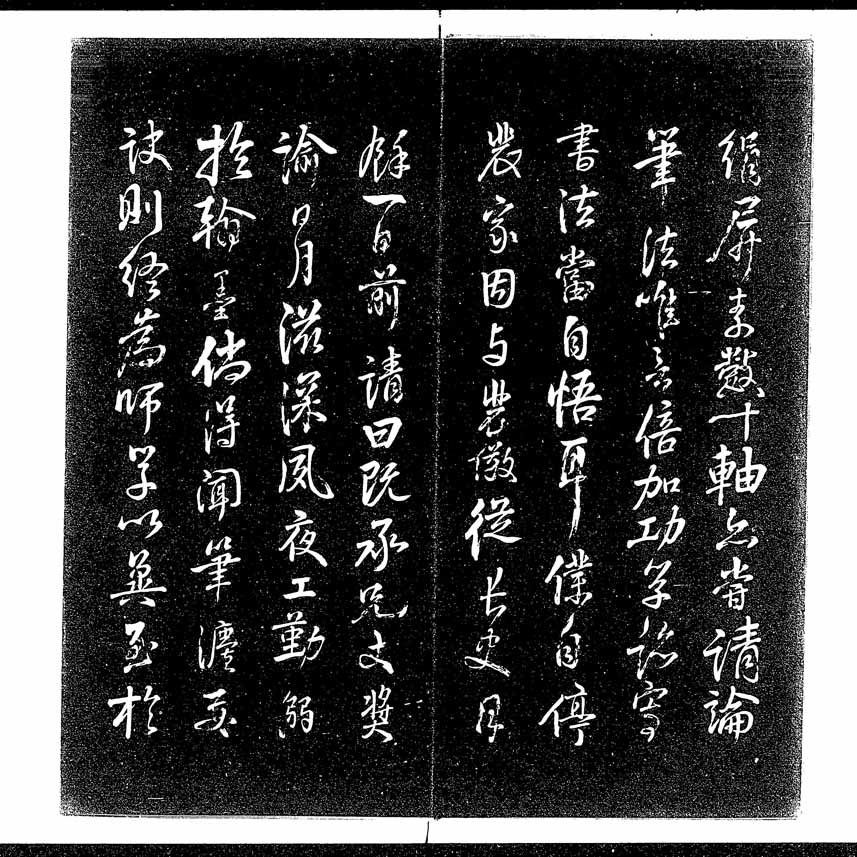 絹屏素數十軸亦嘗請論
筆法唯言倍加功學臨寫
書法當自悟耳僕自停
裴家因與裴儆從長史月
餘一日前請曰既承兄丈獎
諭日月滋深夙夜工勤溺
於翰墨倘得聞筆法要
訣則終為師學以冀至於